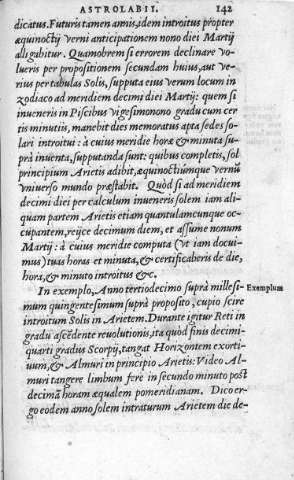 ASTROLABII. 142
dicatus. Futuris tamen annis, idem introitus propter
æquinoctij verni anticipationem nono diei Martij
alligabitur. Quamobrem si errorem declinare vo-
lueris per propositionem secundam huius, aut ve-
rius per tabulas Solis, supputa eius verum locum in
zodiaco ad meridiem decimi diei Martij: quem si
inueneris in Piscibus vigesimonono gradu cum cer
tis minutiis, manebit dies memoratus apta sedes so-
lari introitui: à cuius meridie horæ & minuta su-
prà inuenta, supputanda sunt: quibus completis, sol
principium Arietis adibit, æquinoctiumque vernũ
vniuerso mundo præstabit. Quòd si ad meridiem
decimi diei per calculum inueneris solem iam ali-
quam partem Arietis etiam quantulamcunque oc-
cupantem, reijce decimum diem, et assume nonum
Martij: à cuius meridie computa (vt iam docui-
mus) tuas horas et minuta, & certificaberis de die,
hora, & minuto introitus &c.
In exemplo, Anno tertiodecimo suprà millesi-
mum quingentesimum suprà proposito, cupio scire
Exemplum
introitum Solis in Arietem. Durante igitur Reti in
gradu ascẽdente reuolutionis, ita quòd finis decimi-
quarti gradus Scorpij, tangat Horizontem exorti-
uum, & Almuri in principio Arietis: Video Al-
muri tangere limbum ferè in secundo minuto post
decimã horam æqualem pomeridianam. Dico er-
go eodem anno solem intraturum Arietem die de-